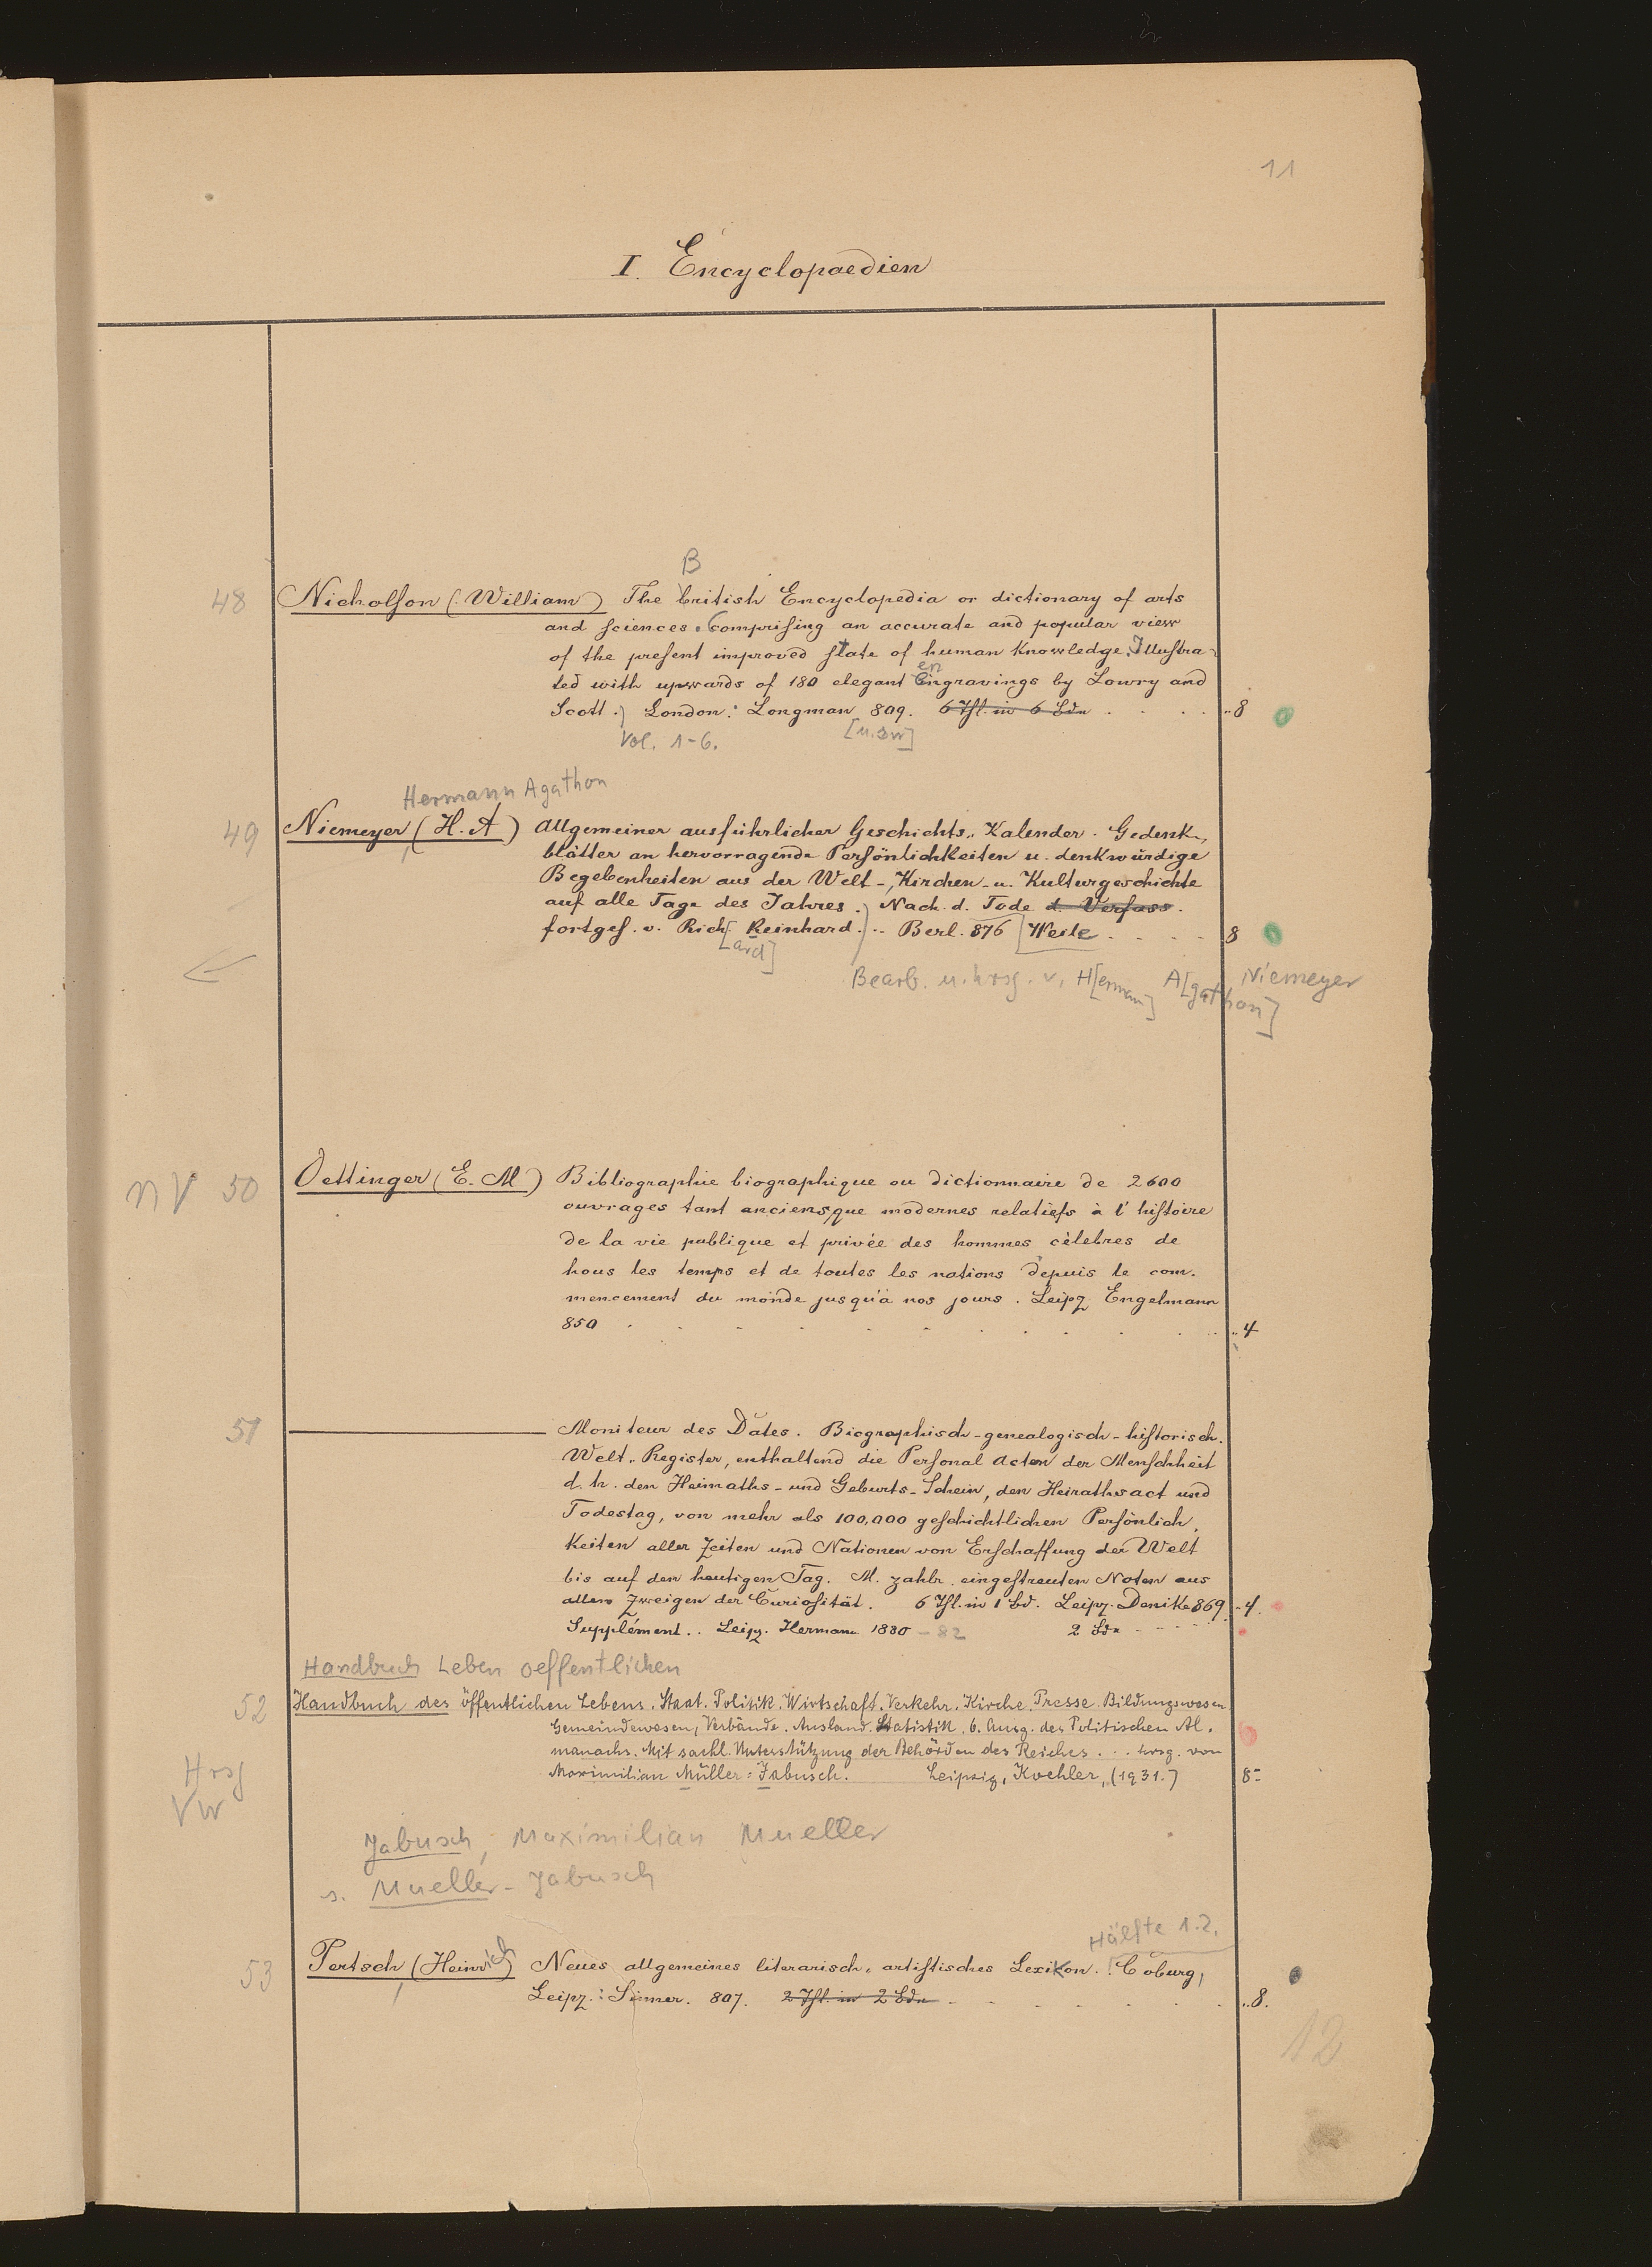 11
I. Encyclopaedien
B
48 Nicholson (William) The british Encyclopedia or dictionary of arts
and sciences. Comprising an accurate and popular view
of the present improved state of human Knowledge. Illustra-
en
ted with upwards of 180 elegant engravings by Lowry and
Scott.) London: Longman 809. 6 Thl. in 6 Bdn . . . . 8
Vol. 1-6. [u.
Hermann Agathon
49 Niemeyer (H. A) Allgemeiner ausführlicher Geschichts-Kalender. Gedenk-
blätter an hervorragende Persönlichkeiten u. denkwürdige
Begebenheiten aus der Welt-, Kirchen- u. Kulturgeschichte
auf alle Tage des Jahres.) Nach d. Tode d. Verfass.
fortges. v. Rich. Reinhard. Berl. 876 [Weile . . . . 8
[ard]
Bearb. u. hrsg. v. H[ermann] A[gathon] Niemeyer
NV 50 Oettinger (E. M) Bibliographie biographique ou dictionnaire de 2600
ouvrages tant anciens que modernes relatiefs à l'histoire
de la vie publique et privée des hommes célebres de
hous les temps et de toutes les nations depuis le com-
mencement du monde jusqu'à nos jours. Leipz Engelmann
850 . . . . . . . . . . 4
51 Moniteur des Dates. Biographisch-genealogisch-historisch.
Welt-Register, enthaltend die Personal Acten der Menschheit
d. h. den Heimaths- und Geburts-Schein, den Heirathsact und
Todestag, von mehr als 100,000 geschichtlichen Persönlich-
Keiten aller Zeiten und Nationen von Erschaffung der Welt
bis auf den heutigen Tag. M. zahlr. eingestreuten Noten aus
allen Zweigen der Curiosität. 6 Thl. in 1 Bd. Leipz. Denike 869. 4.
Supplément.. Leipz. Hermann 1880 - 82 2 Bdn - - - - -
Handbuch Leben oeffentlichen
52 Handbuch des öffentlichen Lebens. Staat. Politik. Wirtschaft. Verkehr. Kirche. Presse. Bildungswesen
Gemeindewesen, Verbände. Ausland. Statistik. 6. Ausg. des Politischen Al-
manachs. Mit sachl. Unterstützung der Behörden des Reiches . . . hrsg. von
Maximilian Müller=Jabusch. Leipzig, Koehler, (1931.) 8=
Hrsg
VW
Jabusch, Maximilian Mueller
s. Mueller-Jabusch
Hälfte 1.2.
53 Pertsch (Heinrich) Neues allgemeines literarisch-artistisches Lexikon. Coburg,
Leipz.: Sinner. 807. 2 Thl. in 2 Bdn - . . . . . 8.
12